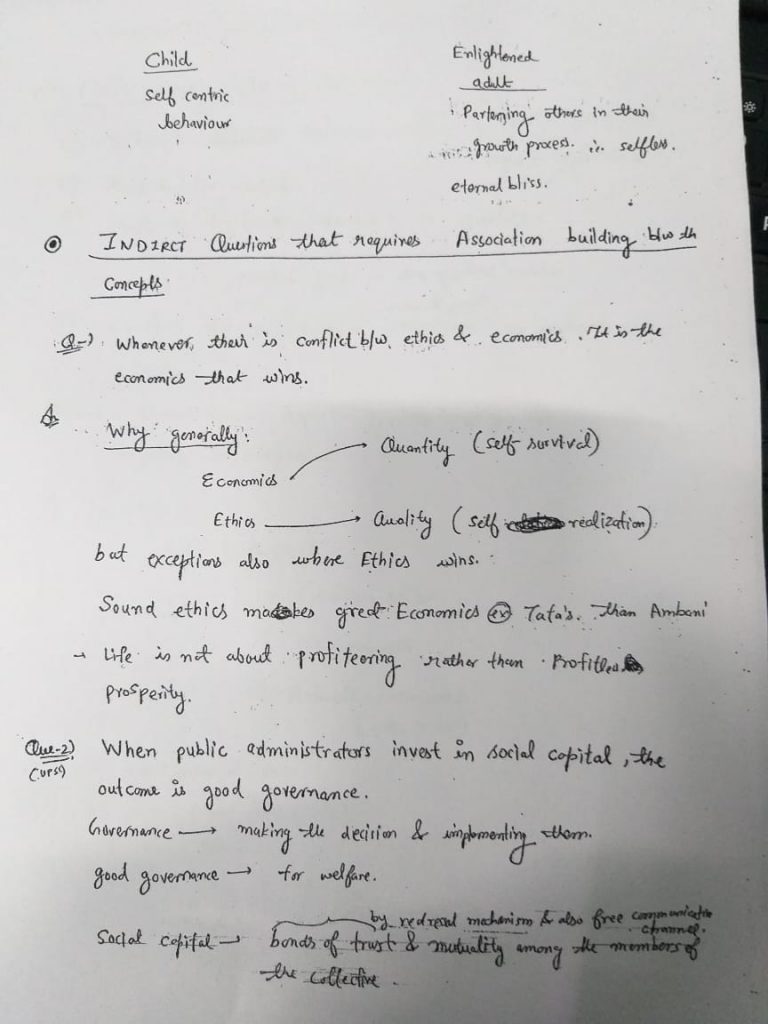 Child
Self centric
behaviour
Enlightened
adult
Partening others in their
growth process. i.e. selfless.
eternal bliss.
INDIRCT Questions that requires Association building b/w th
Concepts
Q→) Whenever their is conflict b/w ethics & economics. It is the
economics that wins.
Why generally:
Economics → Quantity (self survival)
Ethics → Quality (self realization).
but exceptions also where Ethics wins.
Sound ethics makes gret Economics ex Tata's. than Ambani
→ Life is not about profiteering rather than
prosperity.
Que-2) When public administrators invest in social capital, the
(UPSC) outcome is good governance.
Governance → making the decision & implementing them.
good governance → for welfare.
by redresal mechanism & also free communication
channel.
Social capital → bonds of trust & mutuality among the members of
the collective.